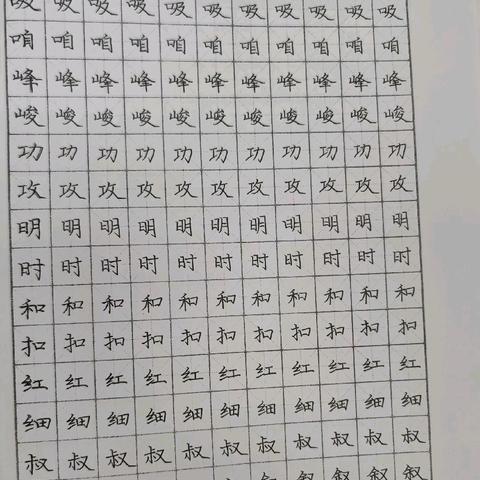 吸吸吸吸吸吸吸吸吸吸吸
咱咱咱咱咱咱咱咱咱咱咱
峰峰峰峰峰峰峰峰峰峰峰
峻峻峻峻峻峻峻峻峻峻峻
功功功功功功功功功功功
攻攻攻攻攻攻攻攻攻攻攻
明明明明明明明明明明明
时时时时时时时时时时时
和和和和和和和和和和和
扣扣扣扣扣扣扣扣扣扣扣
红红红红红红红红红红红
细细细细细细细细细细细
叔叔叔叔叔叔叔叔叔叔叔
叙叙叙叙